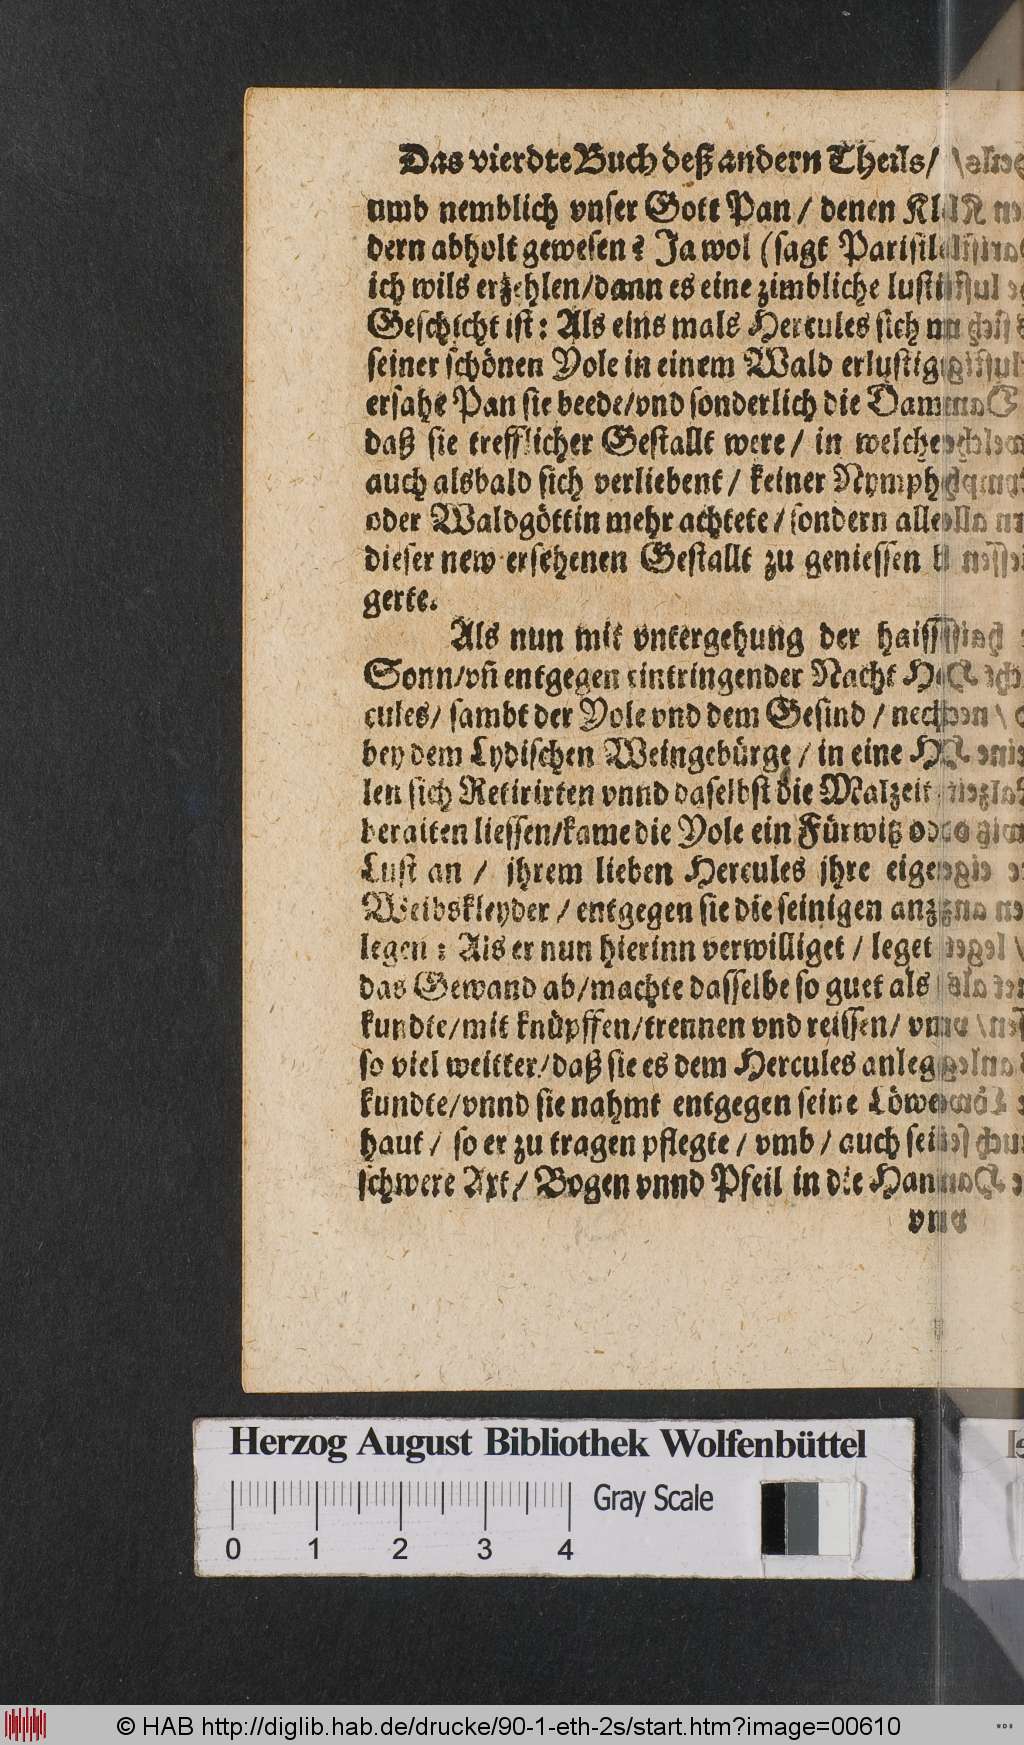 Das vierdte Buch deß andern Theils/
umb nemblich vnser Gott Pan / denen Klai
dern abholt gewesen? Ja wol (sagt Parisil
ich wils erzehlen/dann es eine zimbliche lusti
Geschicht ist: Als eins mals Hercules sich
seiner schönen Yole in einem Wald erlustig
ersahe Pan sie beede/vnd sonderlich die Dam
daß sie trefflicher Gestallt were / in welche
auch alsbald sich verliebent / keiner Nymph
oder Waldgöttin mehr achtete / sondern alle
dieser new ersehenen Gestallt zu geniessen
gerte.
Als nun mit vntergehung der haiss
Sonn/vñ entgegen eintringender Nacht Her
cules/ sambt der Yole vnd dem Gesind / nech
bey dem Lydischen Weingebürge / in eine Hö
len sich Retirirten vnnd daselbst die Malzeit
beraiten liessen/kame die Yole ein Fürwitz oder
Lust an / jhrem lieben Hercules jhre eige
Weibskleyder / entgegen sie die seinigen anzu
legen : Als er nun hierinn verwilliget / leget
das Gewand ab/machte dasselbe so guet als
kundte/mit knüpffen/trennen vnd reissen/ vm
so viel weitter/daß sie es dem Hercules anleg
kundte/vnnd sie nahmt entgegen seine Löwe
haut / so er zu tragen pflegte / vmb / auch sei
schwere Axt/ Bogen vnnd Pfeil in die Han
vn
Herzog August Bibliothek Wolfenbüttel
Gray Scale
0 1 2 3 4
© HAB http://diglib.hab.de/drucke/90-1-eth-2s/start.htm?image=00610